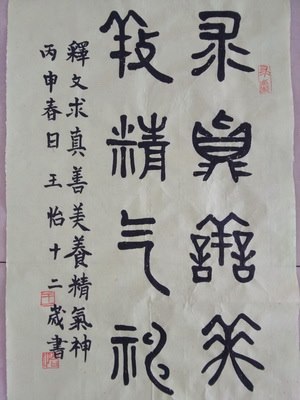 求真善美
养精气神
釋文求真善美養精氣神
丙申春日王怡十二歲書